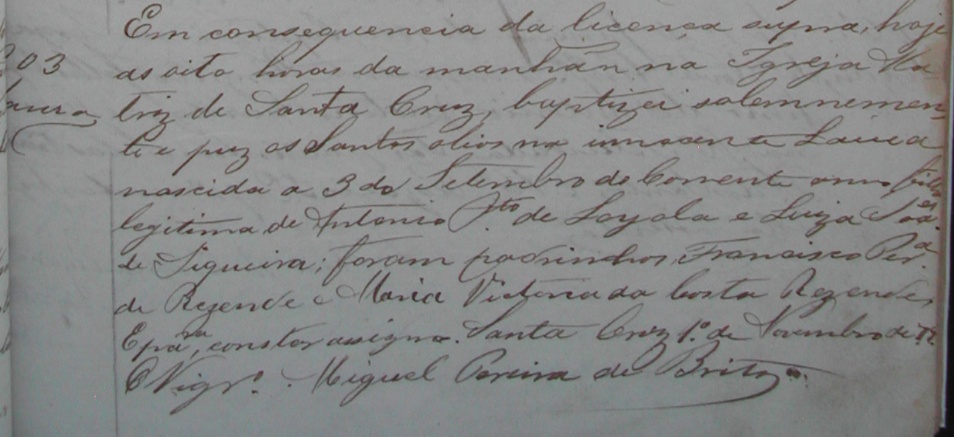 Em consequencia da licença supra, hoje
203 as oito horas da manhãn na Igreja Ma
Laura triz de Santa Cruz, baptizei solemnemen-
te e puz os Santos olios na innocente Laura
nascida a 3 do Setembro do Corrente anno filha
legitima de Antonio P.to de Loyola e Luiza
de Siqueira; foram padrinhos, Francisco Per.a
de Rezende e Maria Victoria da Costa Rezende,
E para, constar assigno. Santa Cruz 1.º de Novembro de
O Vigr.º Miguel Pereira de Brito.